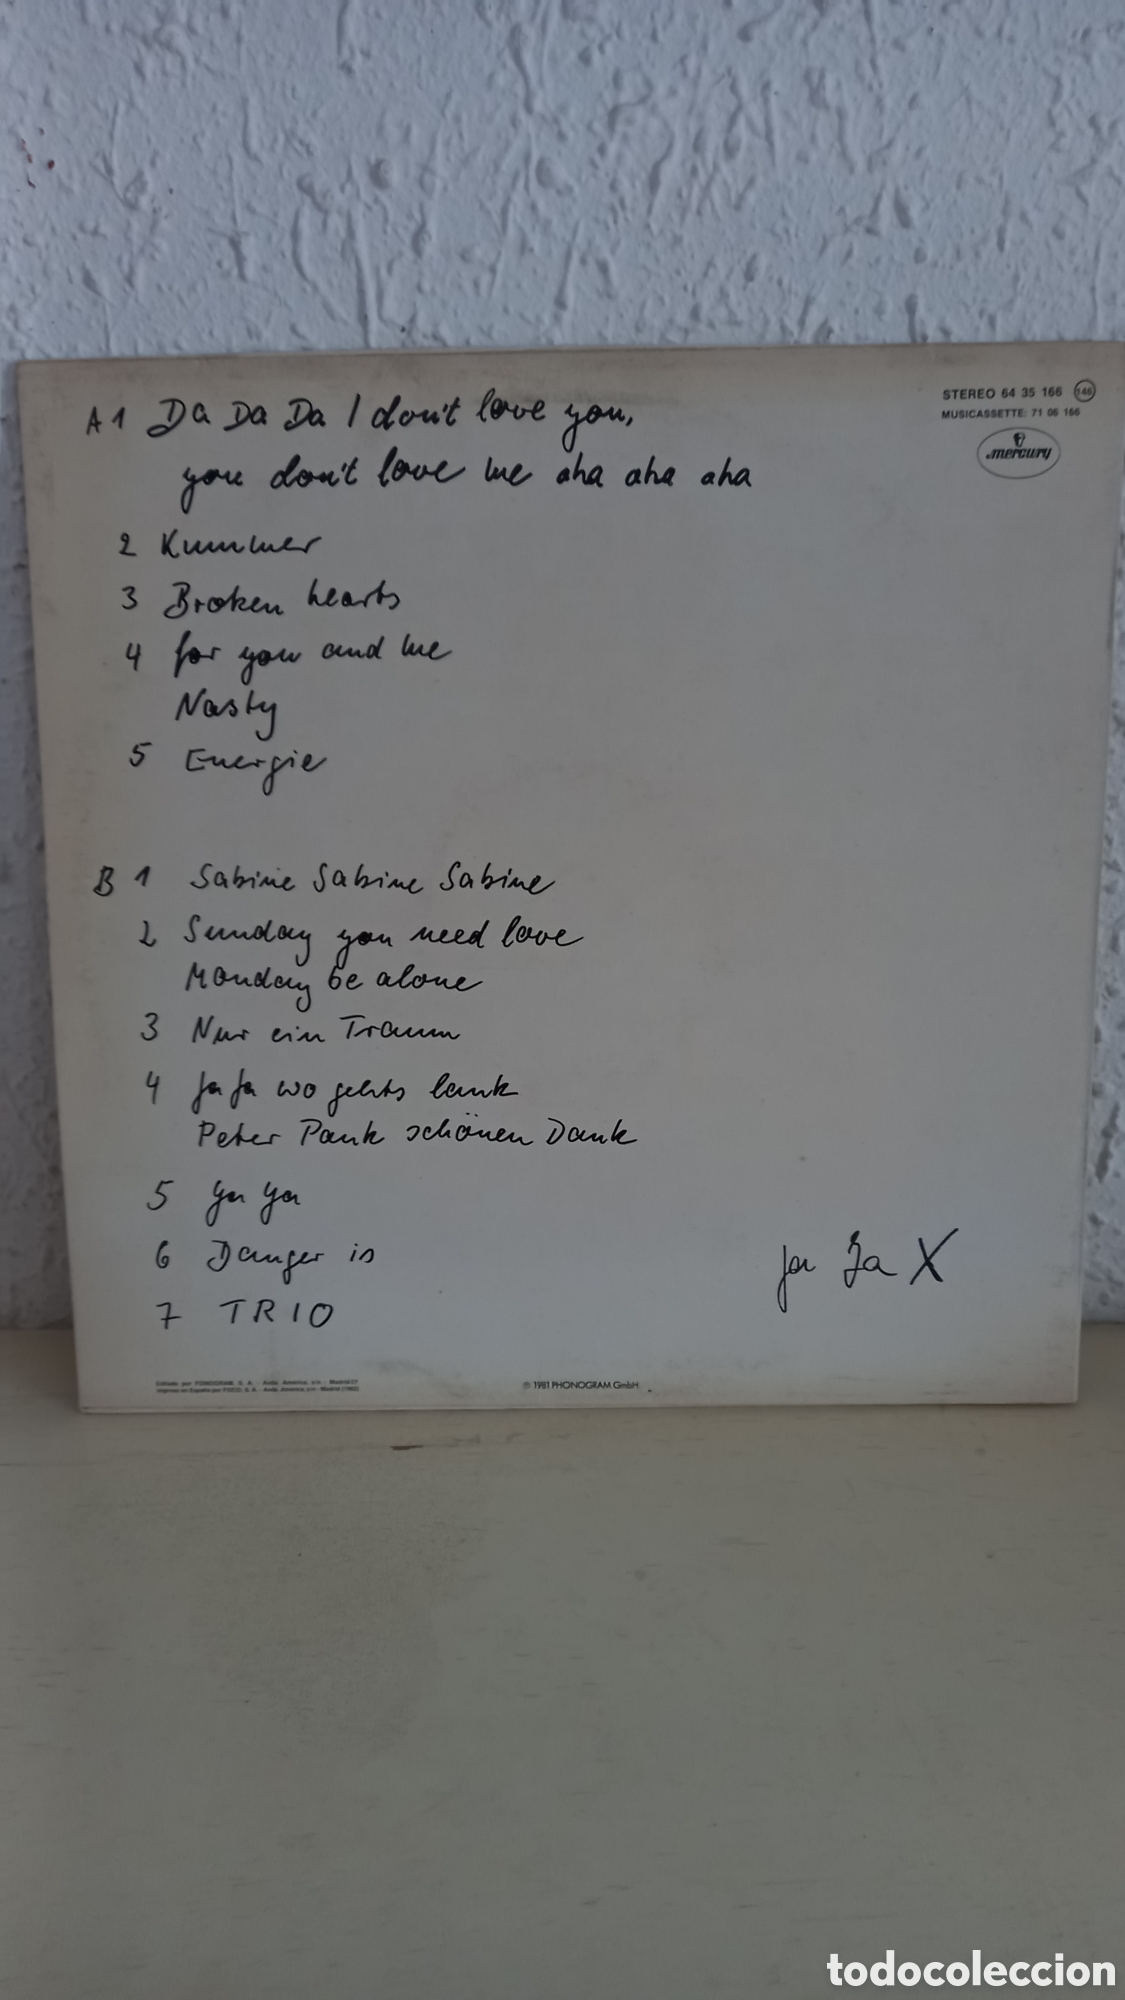 STEREO 64 35 166 146
MUSICASSETTE: 71 06 166
mercury
A 1 Da Da Da I don't love you,
you don't love me aha aha aha
2 Kummer
3 Broken hearts
4 for you and me
Nasty
5 Energie
B 1 Sabine Sabine Sabine
2 Sunday you need love
Monday be alone
3 Nur ein Traum
4 Ja Ja wo gehts lank
Peter Pank schönen Dank
5 Ya Ya
6 Danger is
7 TRIO
Ja Ja X
Editado por FONOGRAM, S. A. - Avda. América, s/n - Madrid-27
Impreso en España por FISCO, S. A. - Avda. América, s/n - Madrid (1982)
℗ 1981 PHONOGRAM GmbH
todocoleccion